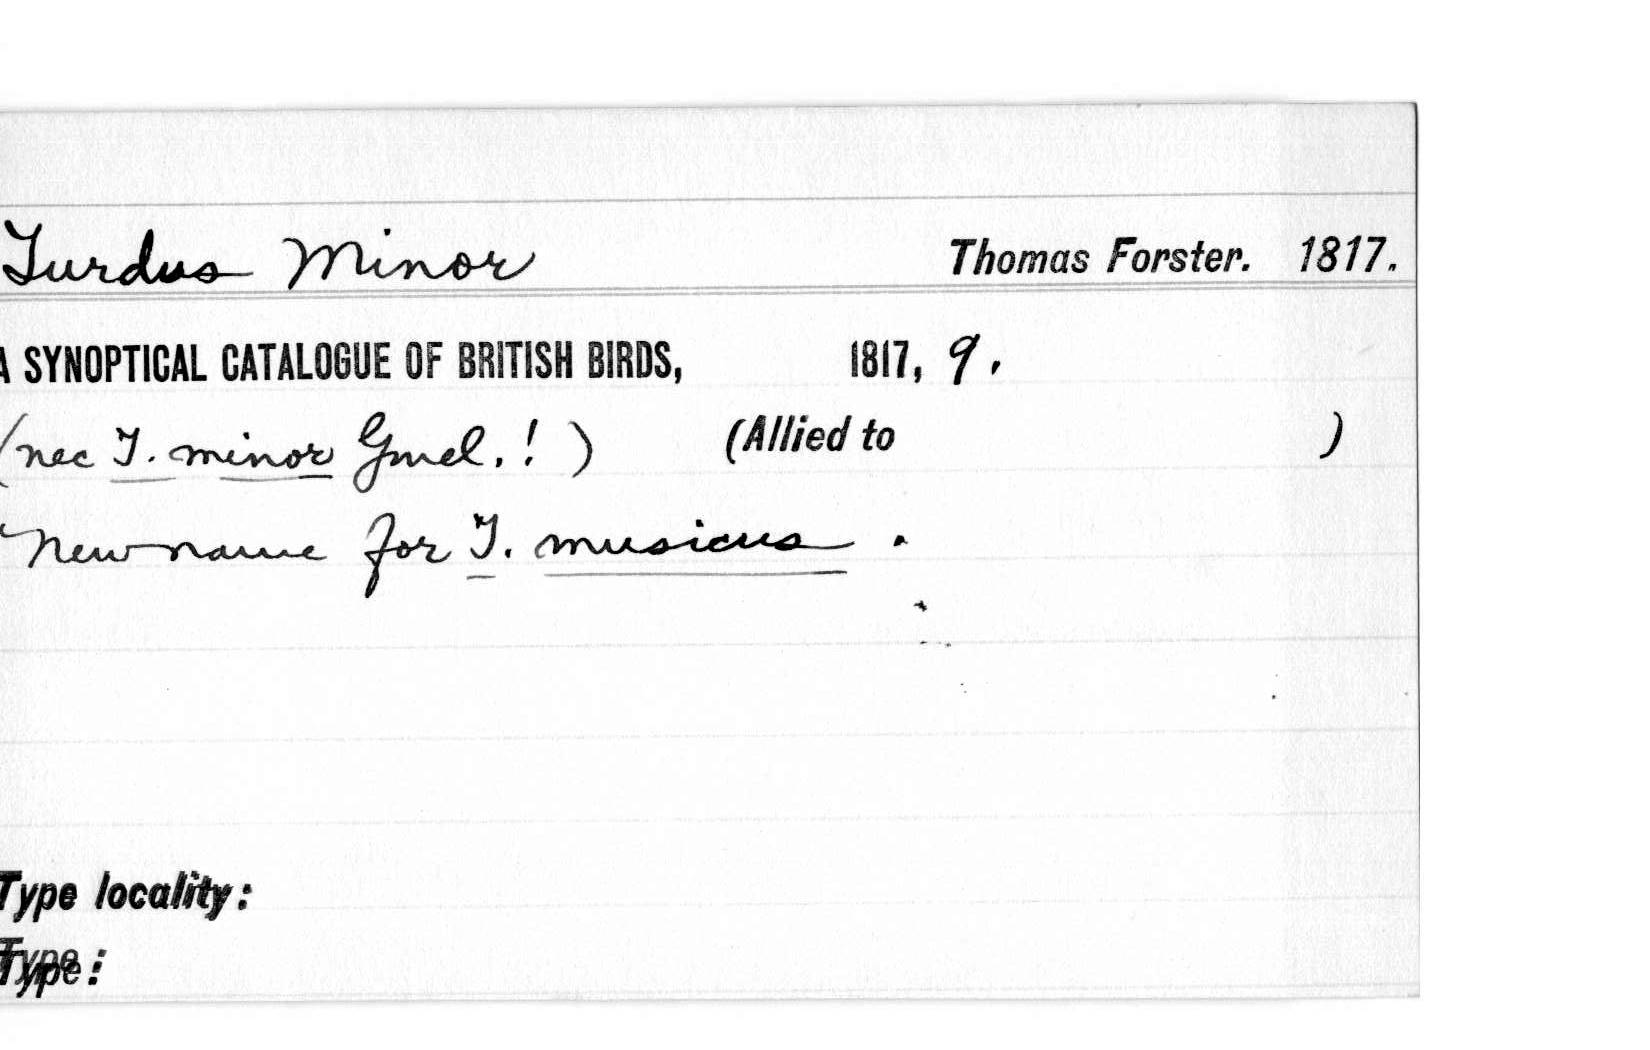 Turdus Minor Thomas Forster. 1817.
A SYNOPTICAL CATALOGUE OF BRITISH BIRDS, 1817, 9.
(nec T. minor Gmel.!) (Allied to )
New name for T. musicus.
Type locality:
Type: